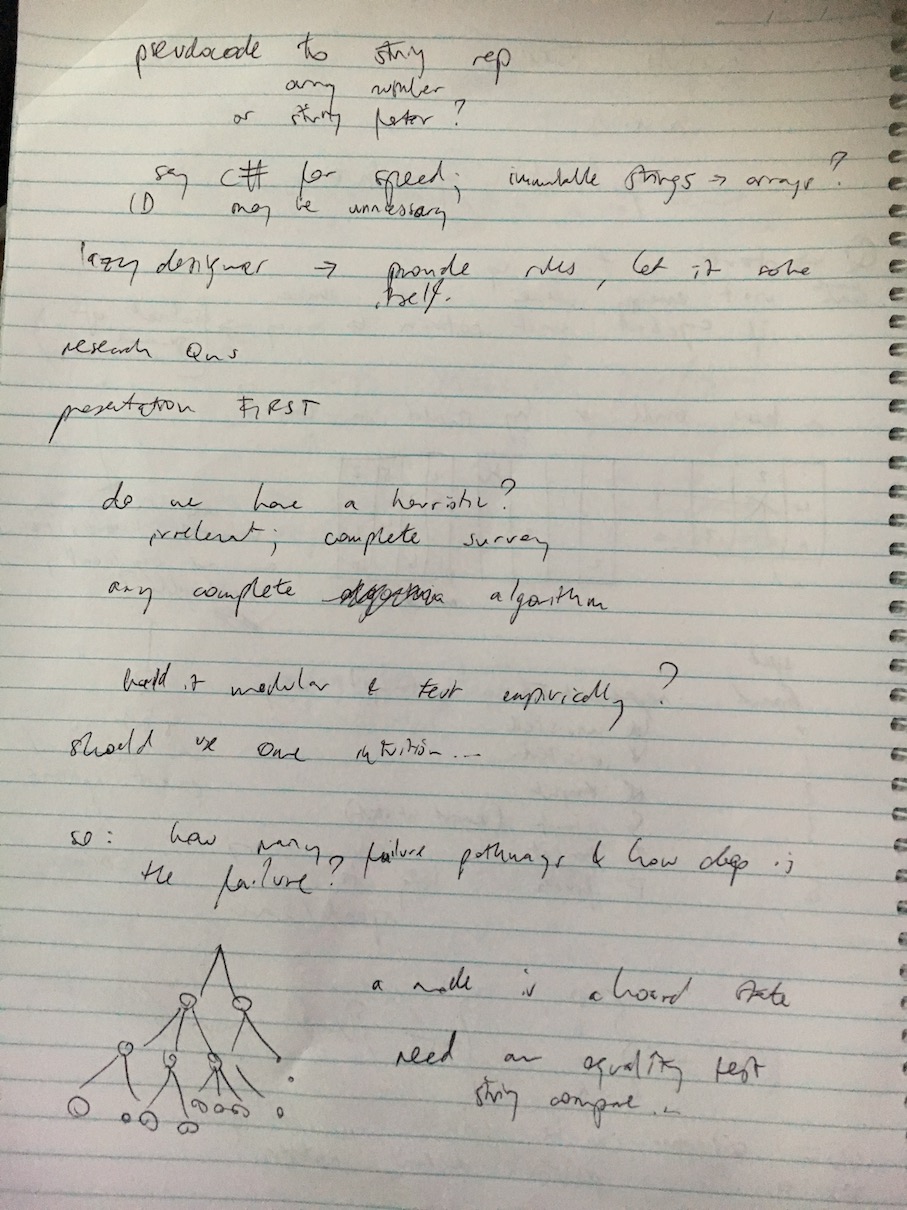 pseudocode to string rep
array number
or string faster?
say C# for speed; immutable strings → arrays?
(D may be unnessary)
lazy designer → provide rules, let it solve
itself.
research Qns
presentation FIRST
do we have a heuristic?
irrelevant; complete survey
any complete algorithm
build it modular & test empirically?
should use one intuition...
so: how many failure pathways & how deep is
the failure?
a node is a board state
need an equality test
string compare...